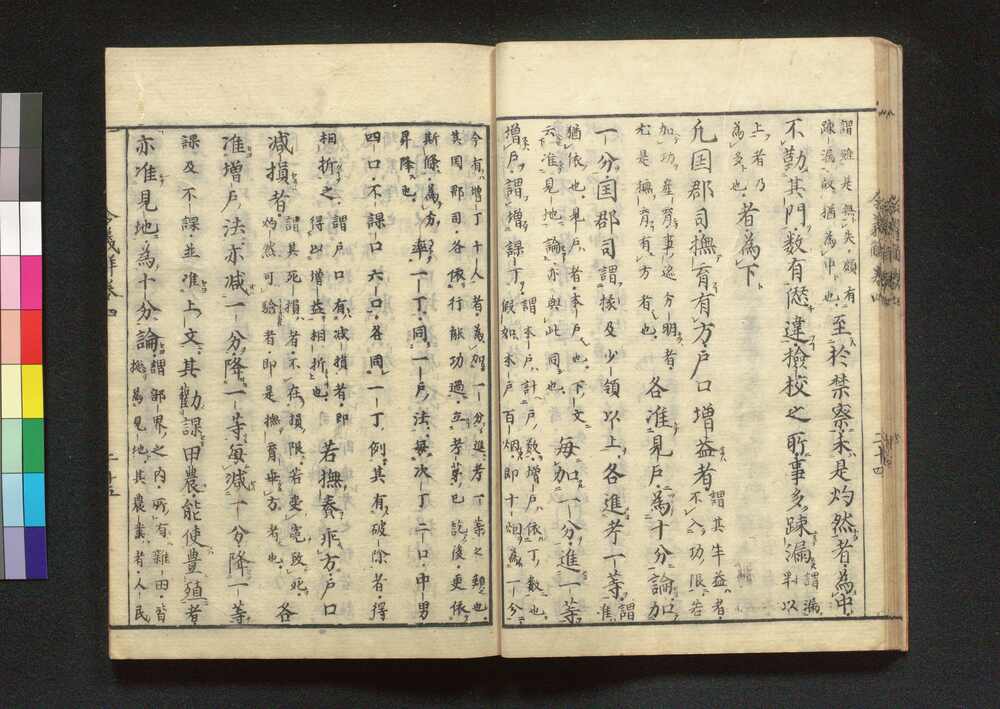 謂雖是熱失頗有
疎漏故猶為中也至於禁察未是灼然者為中
不勤其門數有愆違撿校之所事多踈漏謂漏剋以
上者乃
為多也者為下
凡国郡司撫育有方戸口增益者謂其牛益者
不入功限若
加功產育事迩方明者
尤是撫育有方者也各准見戸為十分論加
一分国郡司謂掾及少領以上各進考一等謂
准
猶依也見戸者本戸也下文
云准見地論亦与此同也每加一分進一等
增戸謂增課丁謂本戸計戸数增戸依丁数也
假如本戸百烟即十烟為一分
今有增丁十人者為加一分進考一等之類也
其国郡司各依行能功過立考第已訖後更依
斯條為
昇降也率一丁同一戸法每次丁二口中男
四口不課口六口各同一丁例其有破除者得
相折之謂戸口有减損者即
得以增益相折也若撫養乖方戸口
减損者謂其死損者不在損限若更冤致死
灼然可驗者即是撫育乖方者也各
准增戸法亦减一分降一等每减一分降一等
課及不課並准上文其勸課田農能使豊殖者
亦准見地為十分論謂部界之内所有雜田皆
挑為見地其農業者人民
令義解巻四
二十四